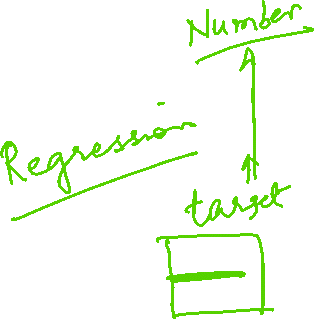 Number
Regression
target